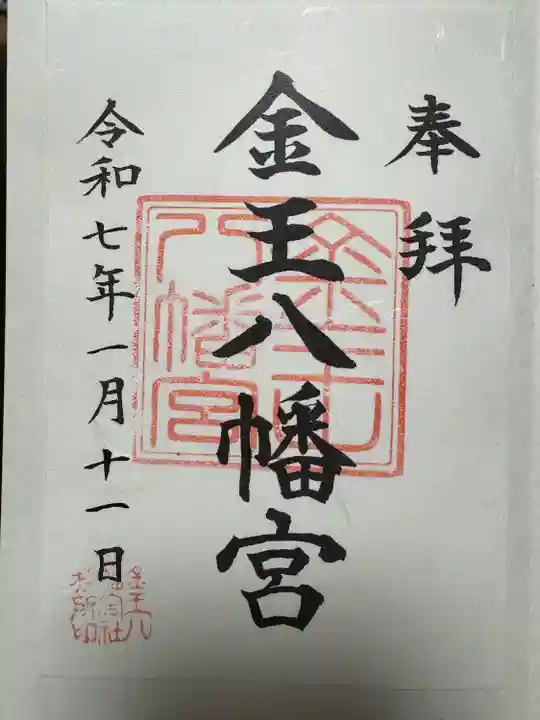 奉拝
金王八幡宮
金王八幡宮
令和七年一月十一日
金王八
幡宮社
務所印